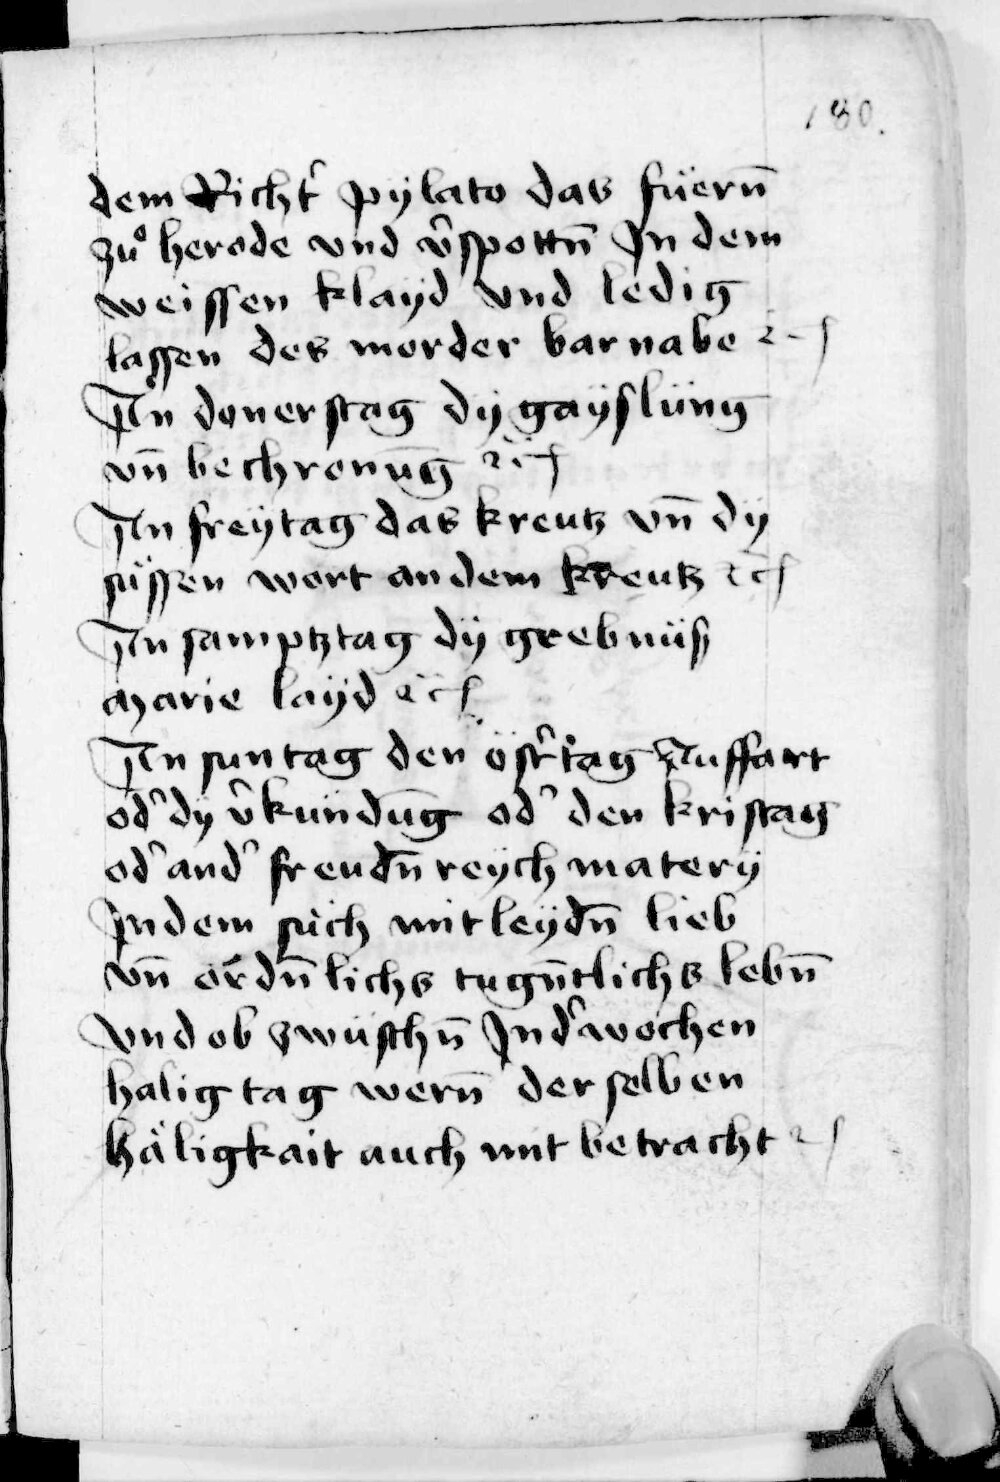 180.
dem Richt᷑ pÿlato das füern̄
zuͦ herode vnd v᷑spottn̄ Jn dem
weissen klaÿd vnd ledig
lassen des morder barnabe ⁊c
An donerstag dÿ gaÿslüng
vn̄ bechronūg ⁊c
An freÿtag das kreutz vn̄ dÿ
süssen wort an dem kreutz ⁊c
An samptztag dÿ grebnüß
Marie laÿd ⁊c
An suntag den öst᷑tag Auffart
od᷑ dÿ v᷑kündūg od᷑ den kristag
od᷑ and᷑ freudn̄reÿch materÿ
Jn dem süch mitleÿdn̄ lieb
vn̄ ordn̄lichs tugn̄tlichs lebn̄
Vnd ob zwüschn̄ Jn d᷑ wochen
halig tag wern̄ der selben
häligkait auch mit betracht ⁊c